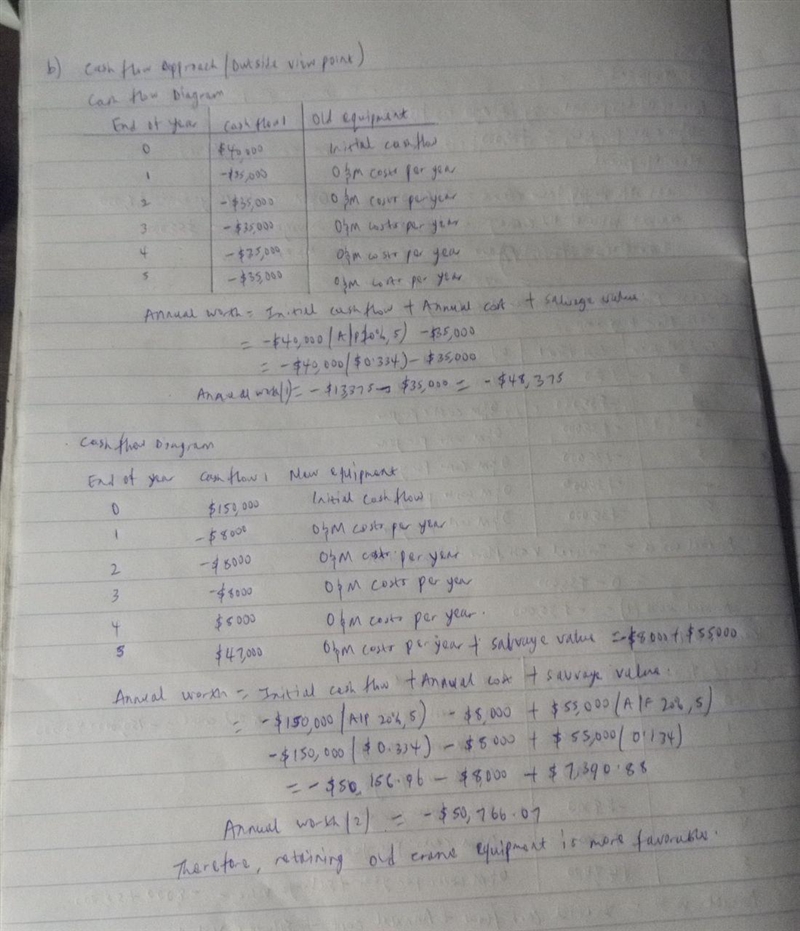 b) Cash flow Approach (Outside view point)
Cash flow Diagram
End of year Cash flow 1 Old equipment
0 $40,000 Initial cashflow
1 -$35,000 O&M costs per year
2 -$35,000 O&M costs per year
3 -$35,000 O&M costs per year
4 -$35,000 O&M costs per year
5 -$35,000 O&M costs per year
Annual worth = Initial cashflow + Annual cost + Salvage value
= -$40,000 (A|P 20%, 5) - $35,000
= -$40,000 ($0.334) - $35,000
Annual worth(1) = -$13,375 - $35,000 = -$48,375
Cash flow Diagram
End of year Cash flow 1 New equipment
0 $150,000 Initial cash flow
1 -$8000 O&M costs per year
2 -$8000 O&M costs per year
3 -$8000 O&M costs per year
4 $8000 O&M costs per year.
5 $47,000 O&M costs per year + Salvage value = -$8000 + $55000
Annual worth = Initial cash flow + Annual cost + Sauvage value.
= -$150,000 (A|P 20%, 5) - $8,000 + $55,000 (A|F 20%, 5)
-$150,000 ($0.334) - $8000 + $55,000 (0.134)
= -$50,156.96 - $8,000 + $7,390.88
Annual worth (2) = -$50,766.07
Therefore, retaining old crane equipment is more favorable.